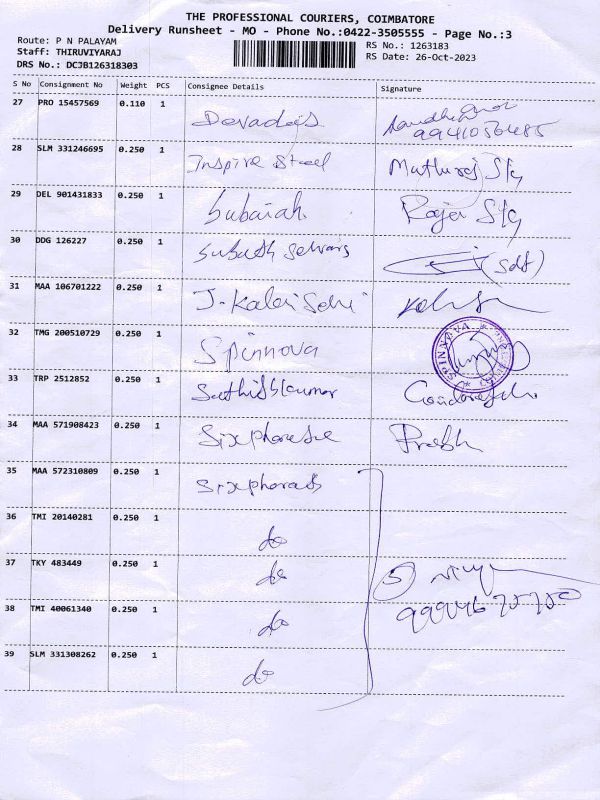 THE PROFESSIONAL COURIERS, COIMBATORE
Delivery Runsheet - MO - Phone No.:0422-3505555 - Page No.:3
Route: P N PALAYAM
RS No.: 1263183
Staff: THIRUVIYARAJ
RS Date: 26-Oct-2023
DRS No.: DCJB126318303
S No Consignment No Weight PCS Consignee Details Signature
27 PRO 15457569 0.110 1 Devadas
28 SLM 331246695 0.250 1 Inspire Steel Muthuraj
29 DEL 901431833 0.250 1 Subaiah Raja
30 DDG 126227 0.250 1 Subash
31 MAA 106701222 0.250 1 J. Kalaiselvi
32 TMG 200510729 0.250 1 Spinnova SPINNOVA
33 TRP 2512852 0.250 1 Sathishkumar
34 MAA 571908423 0.250 1
35 MAA 572310809 0.250 1
36 TMI 20140281 0.250 1 do
37 TKY 483449 0.250 1 do
38 TMI 40061340 0.250 1 do
39 SLM 331308262 0.250 1 do